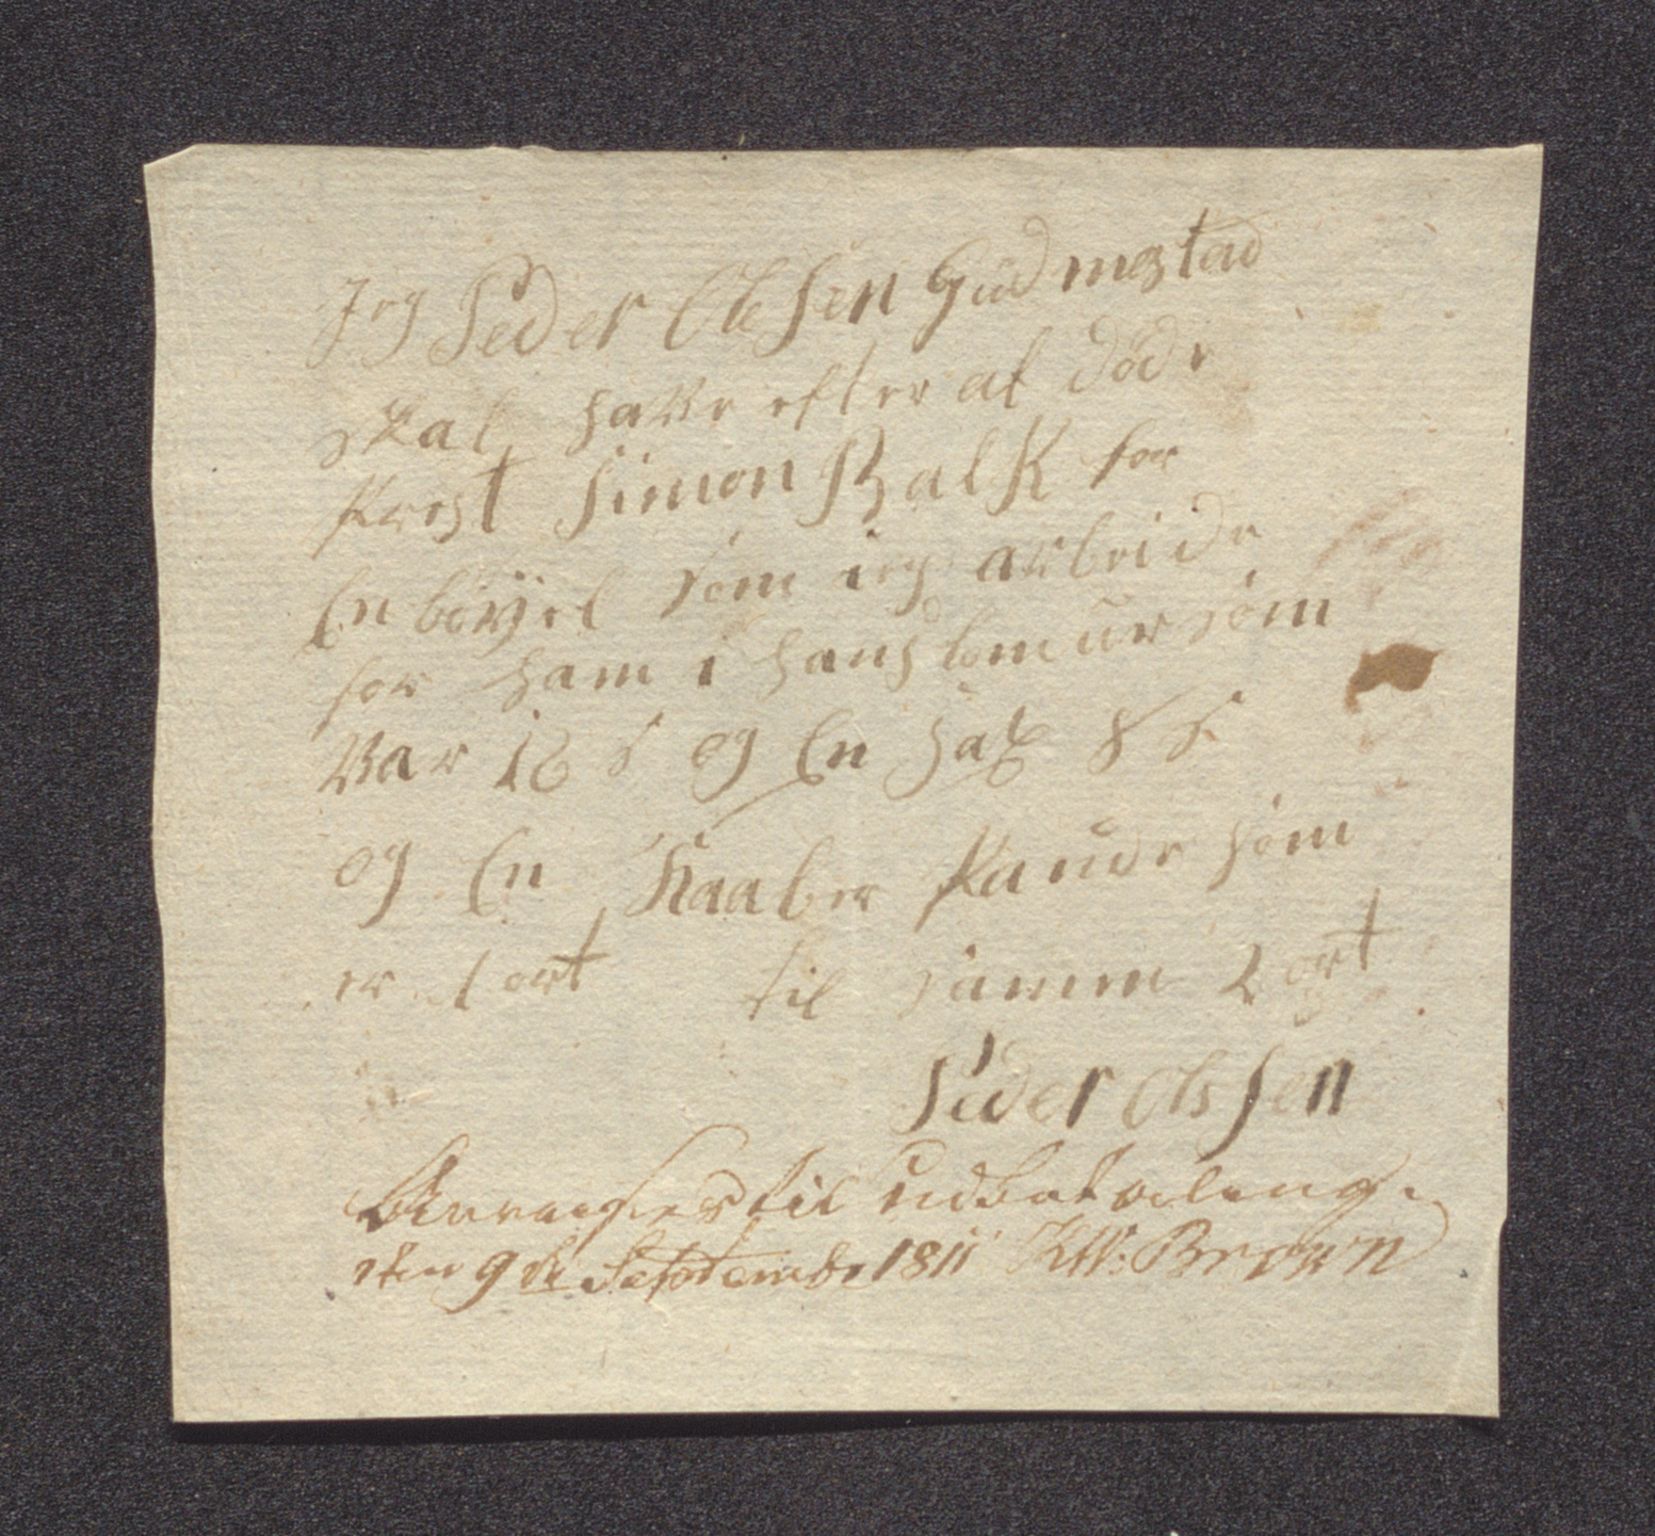 Jeg Peder Olesen Gudmestad
skal have efter al döde
Prest Simon Balk for
En böyel som ieg arbeide
for ham i hans lomur som
Var 16 s og En hal 8 s
og En Kaaber Pande som
er 1 ort til samme 2 ort
Peder Olssen
Anvises til Udbetaling.
den 9de September 1811 KW: Brown